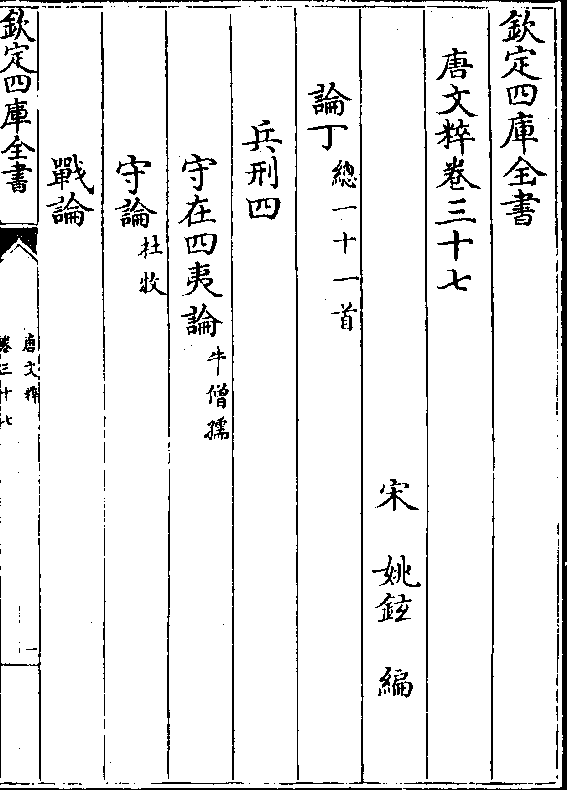 欽定四庫全書
唐文粹卷三十七
宋 姚鉉 編
論丁 總一十一首
兵刑四
守在四夷論 牛僧孺
守論 杜牧
戰論
欽定四庫全書
唐文粹
卷三十七
一